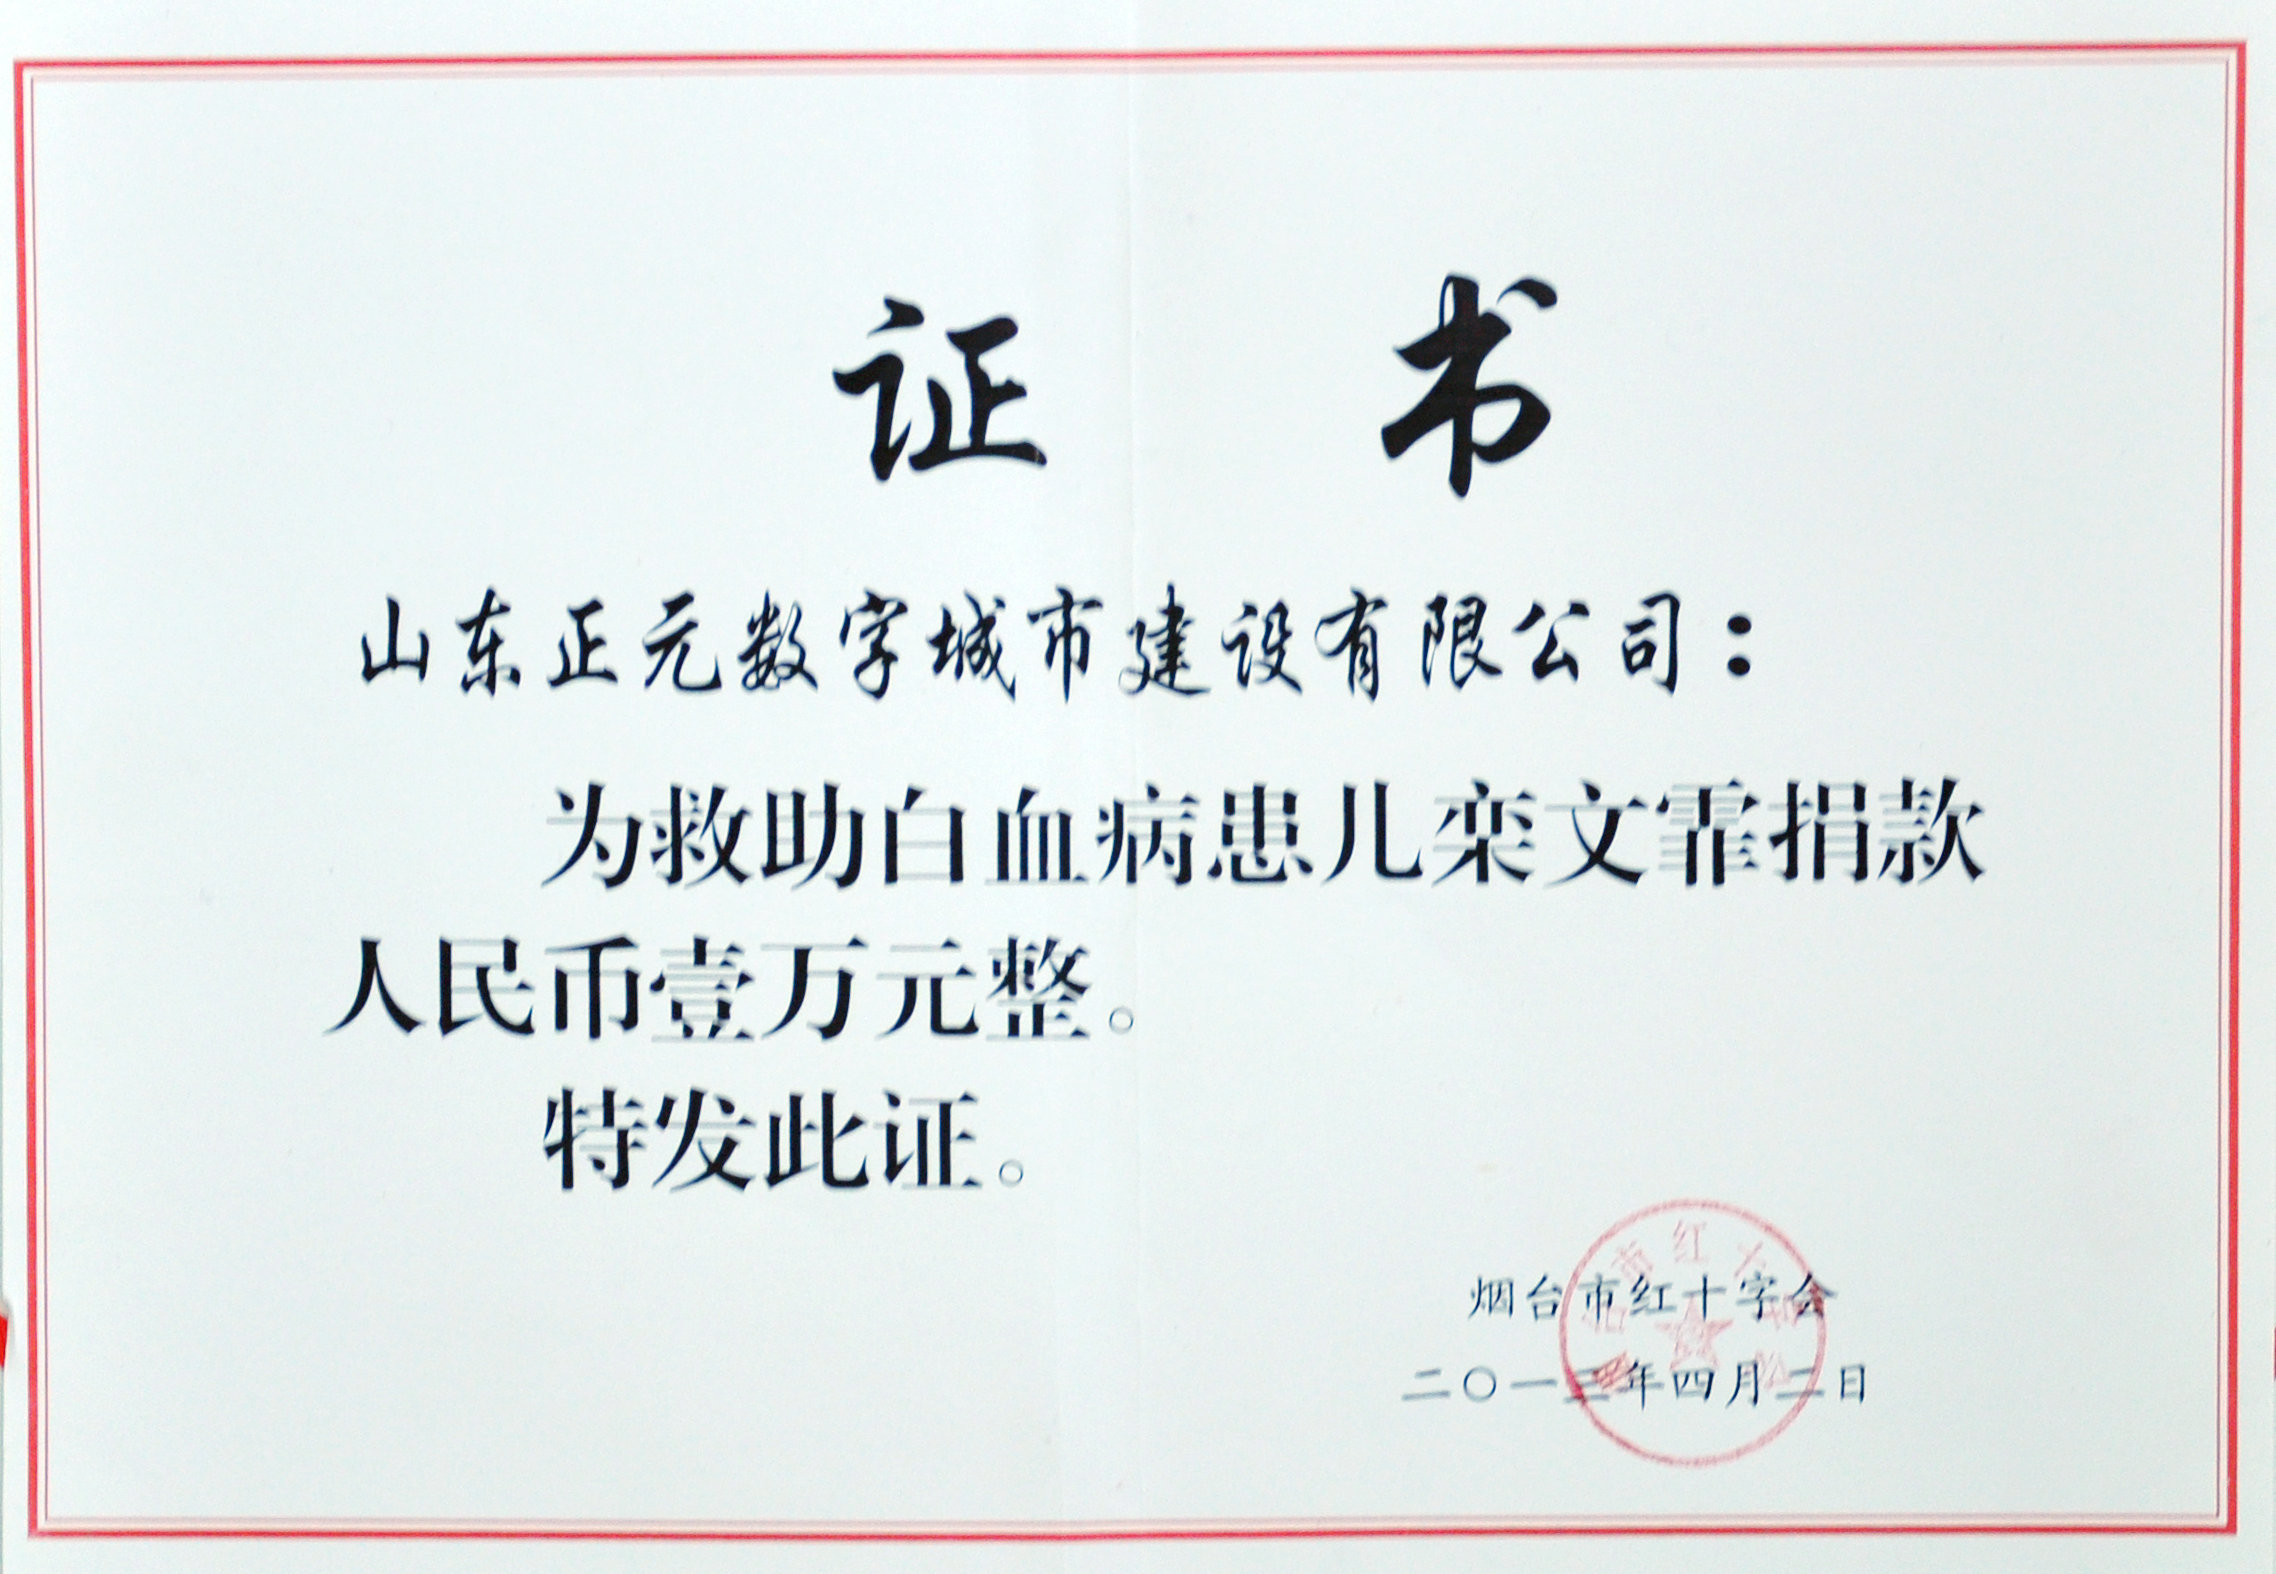 证 书
山东正元数字城市建设有限公司：
为救助白血病患儿栾文霏捐款
人民币壹万元整。
特发此证。
烟台市红十字会
二〇一三年四月二日